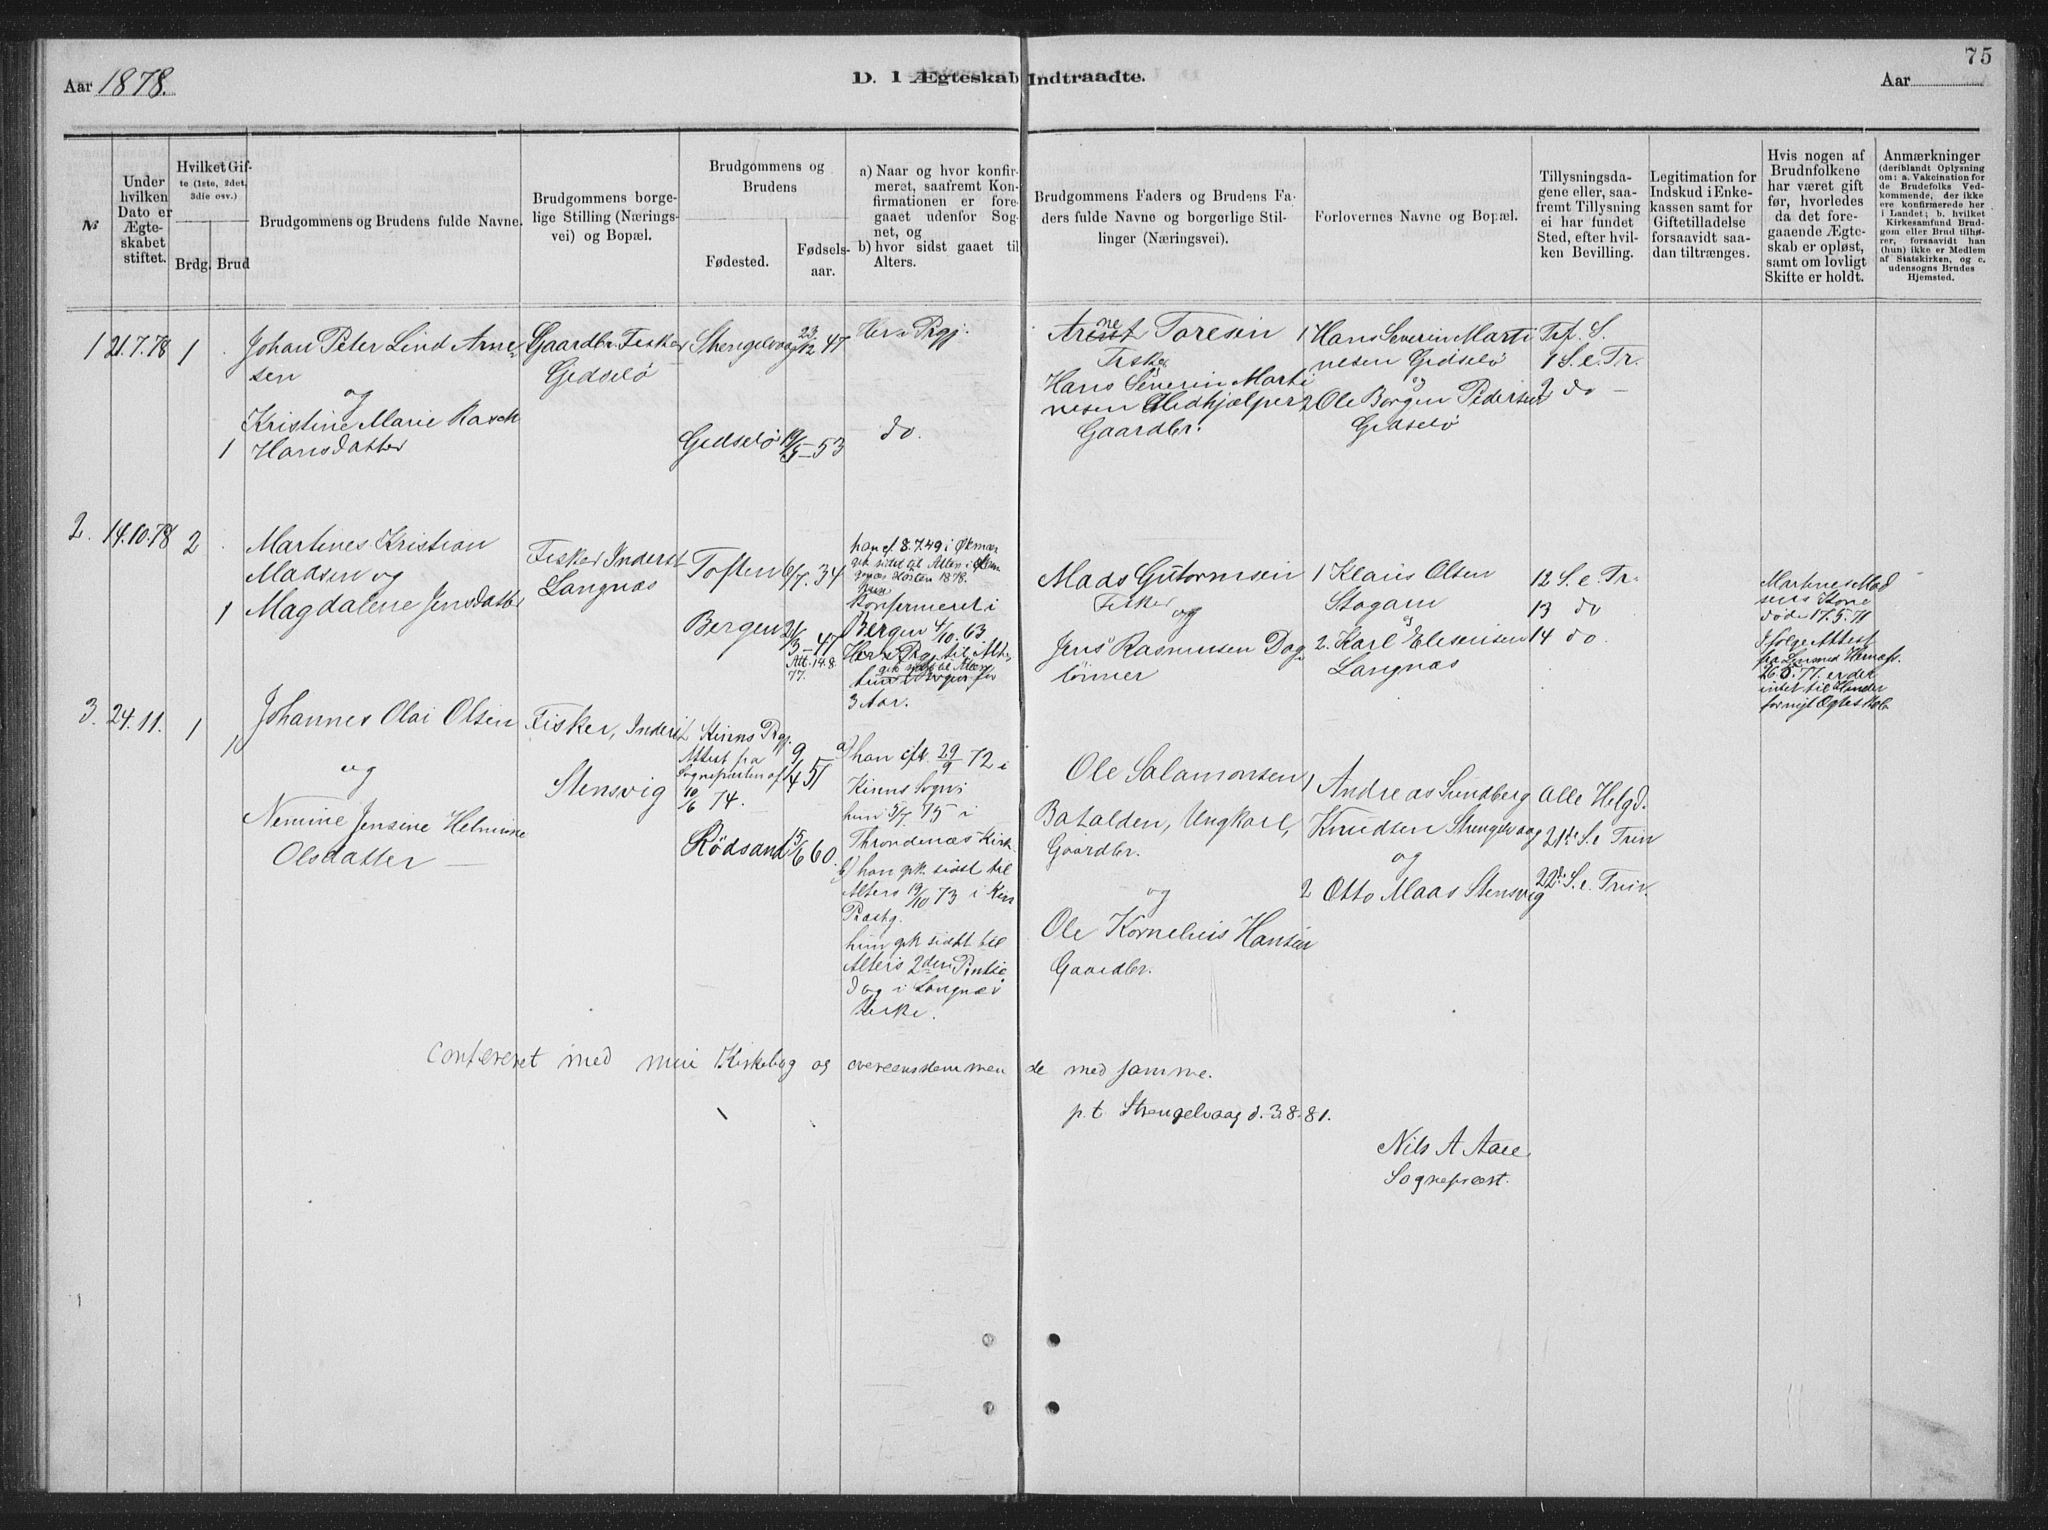 75
Aar 1878.
D. I Ægteskab Indtraadte.
Aar
№
Under hvilken Dato er Ægteskabet stiftet.
Hvilket Gifte (1ste, 2det, 3die osv.)
Brdg. Brud
Brudgommens og Brudens fulde Navne.
Brudgommens borgelige Stilling (Næringsvei) og Bopæl.
Brudgommens og Brudens
Fødested.
Fødselsaar.
a) Naar og hvor konfirmeret, saafremt Konfirmationen er foregaaet udenfor Sognet, og
b) hvor sidst gaaet til Alters.
Brudgommens Faders og Brudens Faders fulde Navne og borgerlige Stillinger (Næringsvei).
Forlovernes Navne og Bopæl.
Tillysningsdagene eller, saafremt Tillysning ei har fundet Sted, efter hvilken Bevilling.
Legitimation for Indskud i Enkekassen samt for Giftetilladelse forsaavidt saadan tiltrænges.
Hvis nogen af Brudnfolkene har været gift før, hvorledes da det foregaaende Ægteskab er opløst, samt om lovligt Skifte er holdt.
Anmærkninger
(deriblandt Oplysning om: a. Vakcination for de Brudefolks Vedkommende, der ikke ere konfirmerede her i Landet; b. hvilket Kirkesamfund Brudgom eller Brud tilhører, forsaavidt han (hun) ikke er Medlem af Statskirken, og c. udensogns Brudes Hjemsted.
1 21.7.78 1
Johan Peter Lind Arnesen
og
Kristine Marie Rasch
1 Hansdatter
Gaardbr. Fisker
Gidselø
Strengelvaag 23/12 47
Gidselø 19/5 – 53
Her i Prgj.
do.
Arne Toresen
Fisker
og
Hans Severin Martinesen Medhjælper
Gaardbr.
1 Hans Severin Martinesen Gidselø
og
2 Ole Borgen Pedersen
Gidselø
Tref. S.
1 S. e. Tr.
2 do –
2. 14.10.78 2
Martines Kristian
Madsen og
1 Magdalene Jensdatter
Fisker Inderst
Langnæs
Toften 6/7. 34
Bergen 21/3 – 47
Att. 14.8.77.
han cf. 8.7.49 i Øksnæs
gik sidst til Alters i
Høsten 1878.
Konfirmeret i
Bergen 4/10. 63
gik sidst til Alters
3 Aar.
Mads Gutormsen
Fisker
og
Jens Rasmussen Daglönner
1 Klaus Olsen
Stogam
og
2. Karl Eleseusen
Langnæs
12 S. e. Tr.
13 do
14 do.
Martines Madsens Kone
døde 17.5.71
Ifölge Attest
fra
26.5.77. er der
intet til Hinder
for nyt Ægteskab.
3. 24.11. 1
1
Johannes Olai Olsen
og
Nemine Jensine Helmine
Olsdatter –
Fisker, Inderst
Stensvig
Kinns Prgj.
Attest fra
Sognepresten af
10/6 74. –
9/4 51
Rödsand 15/6 60.
a) han cfr. 29/9 72 i
Kinns Sogn
hun 5/7. 75 i
Throndenæs Kirk.
b) han gik sidst til
Alters 19/10 73 i Kin
Præstg.
hun gik sidst til
Alters 2den Pintsedag i Langnæs
Kirke.
Ole Salamonsen
Batalden, Ungkarl,
Gaardbr.
og
Ole Kornelius Hansen
Gaardbr.
1 Andreas Sundberg
Knudsen Strengelvaag
og
2 Otto Maas Stensvig
Alle Helgd.
21de S. e Trin
22de S. e. Trin.
confereret med min Kirkebog og overensstemmende med samme.
p. t Strengelvaag d. 3.8.81.
Nils A Aall
Sogneprest.